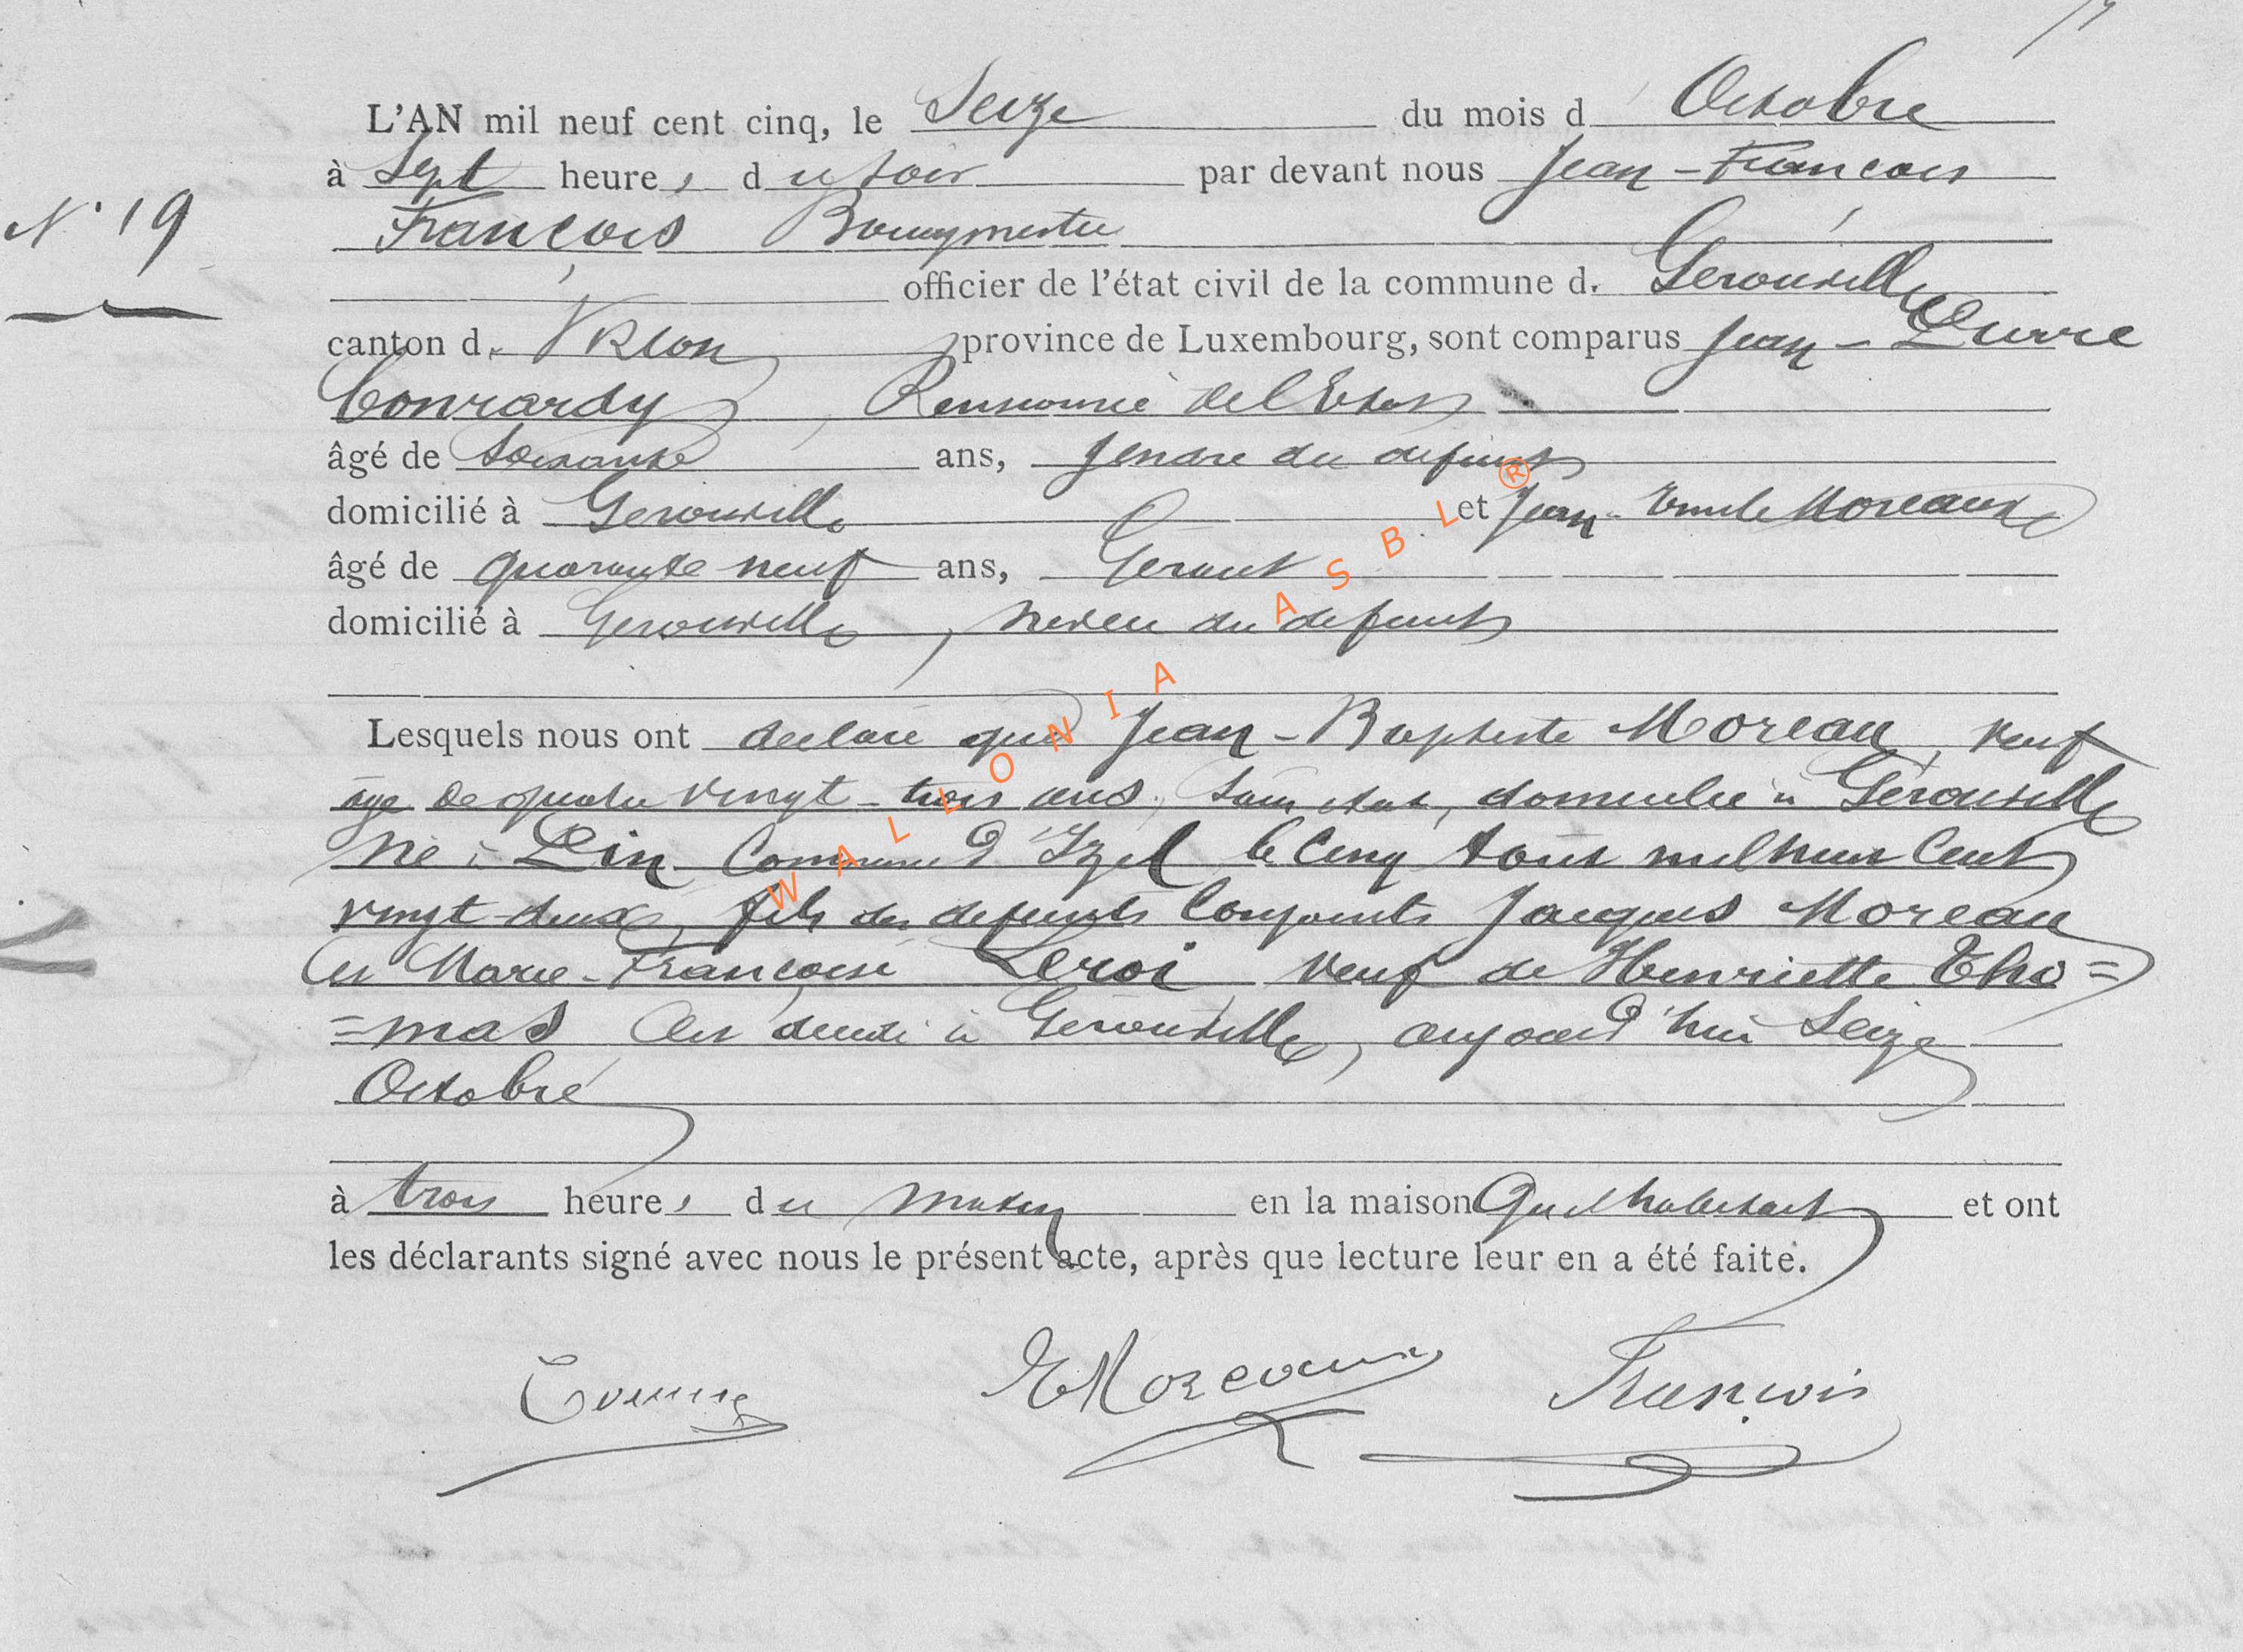 L'AN mil neuf cent cinq, le Seize du mois d Octobre
à Sept heures du soir par devant nous Jean-François
N° 19
François Bourgmestre
officier de l'état civil de la commune d. Gérouville
canton d. Virton province de Luxembourg, sont comparus Jean-Pierre
Conrardy, Pensionné de l'Etat
âgé de Soixante ans, gendre du défunt
domicilié à Gérouville et Jean-Emile Moreaux
âgé de quarante neuf ans, Gérant
domicilié à Gérouville, neveu du défunt
Lesquels nous ont déclaré que Jean-Baptiste Moreau, veuf
âgé de quatre vingt-trois ans, sans état, domicilié à Gérouville
né à Pin commune d'Izel le cinq Août mil huit cent
vingt-deux, fils des défunts conjoints Jacques Moreau
et Marie-Françoise Leroi, veuf de Henriette Tho=
=mas est décédé à Gérouville, aujourd'hui Seize
Octobre
à trois heures du matin en la maison qu'il habitait et ont
les déclarants signé avec nous le présent acte, après que lecture leur en a été faite.
E Moreaux François
WALLONIA ASBL ®